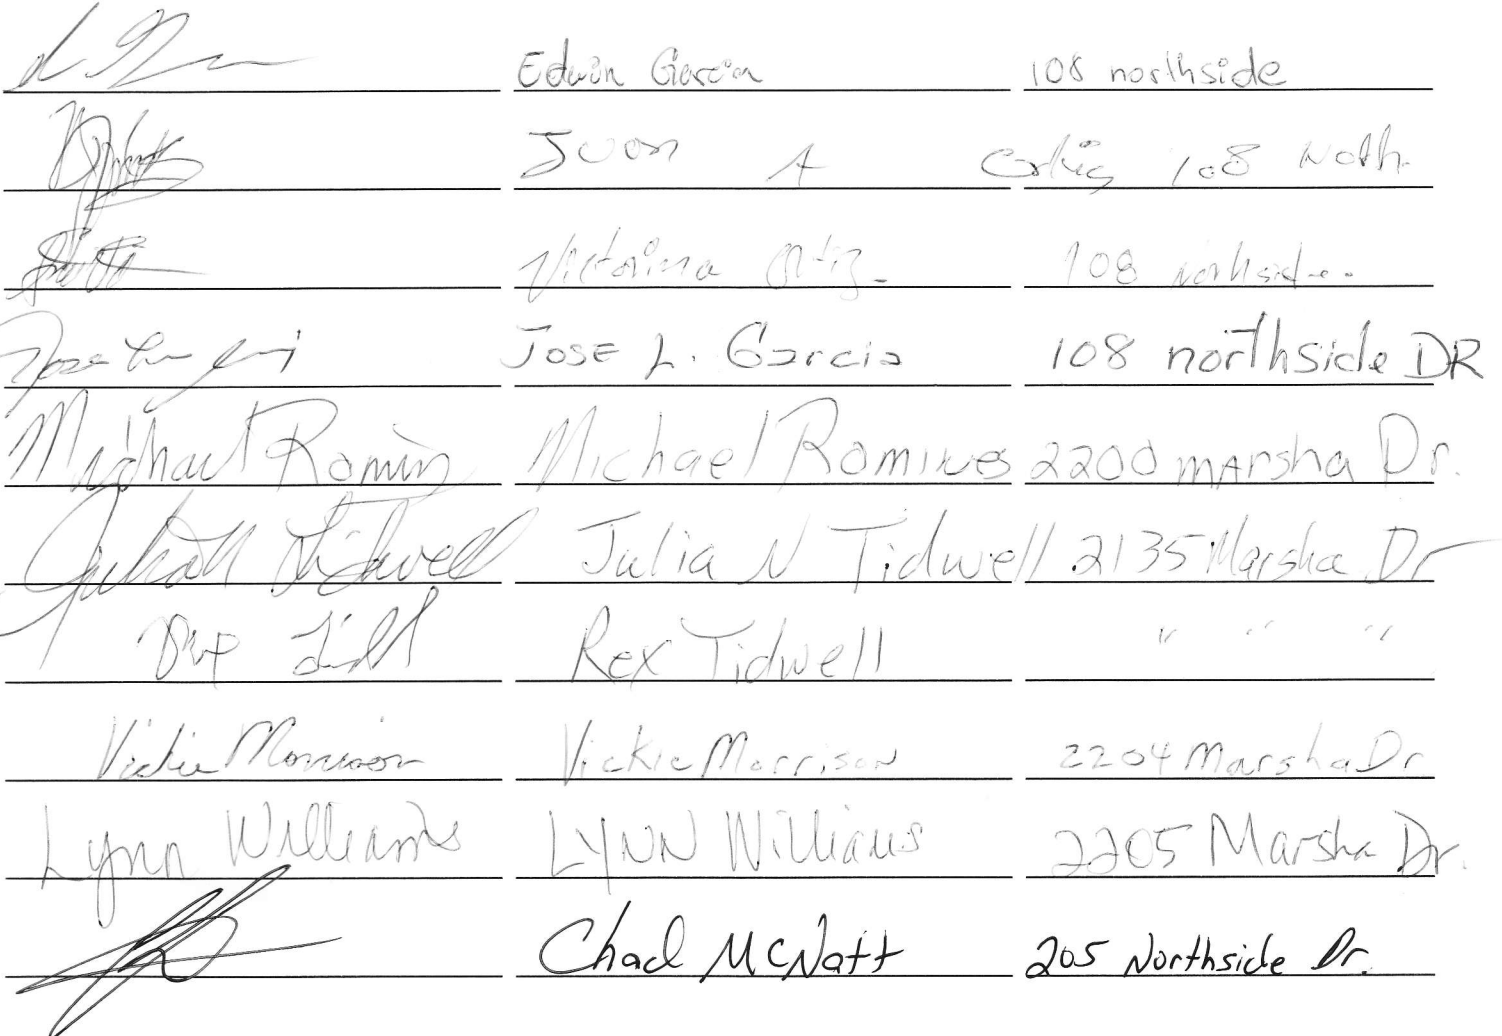 Edwin Garcia 108 northside
Juan A 108 North.
Victorina Ortiz 108 northside..
Jose L. Garcia JOSE L. Garcia 108 northside DR
Michael Romines Michael Romines 2200 marsha Dr.
Julia N Tidwell Julia N Tidwell 2135 Marsha Dr
Rex Tidwell Rex Tidwell " " "
Vickie Morrison Vickie Morrison 2204 Marsha Dr
Lynn Williams LYNN Williams 2205 Marsha Dr.
Chad McNatt 205 Northside Dr.